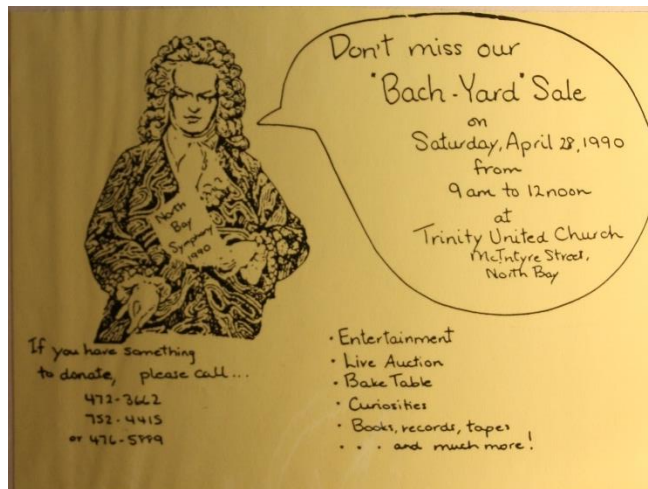 Don't miss our
"Bach-Yard" Sale
on
Saturday, April 28, 1990
from
9 am to 12 noon
at
Trinity United Church
McIntyre Street,
North Bay
North
Bay
Symphony
1990
If you have something
to donate, please call...
472-3662
752-4415
or 476-5999
• Entertainment
• Live Auction
• Bake Table
• Curiosities
• Books, records, tapes
. . . and much more!